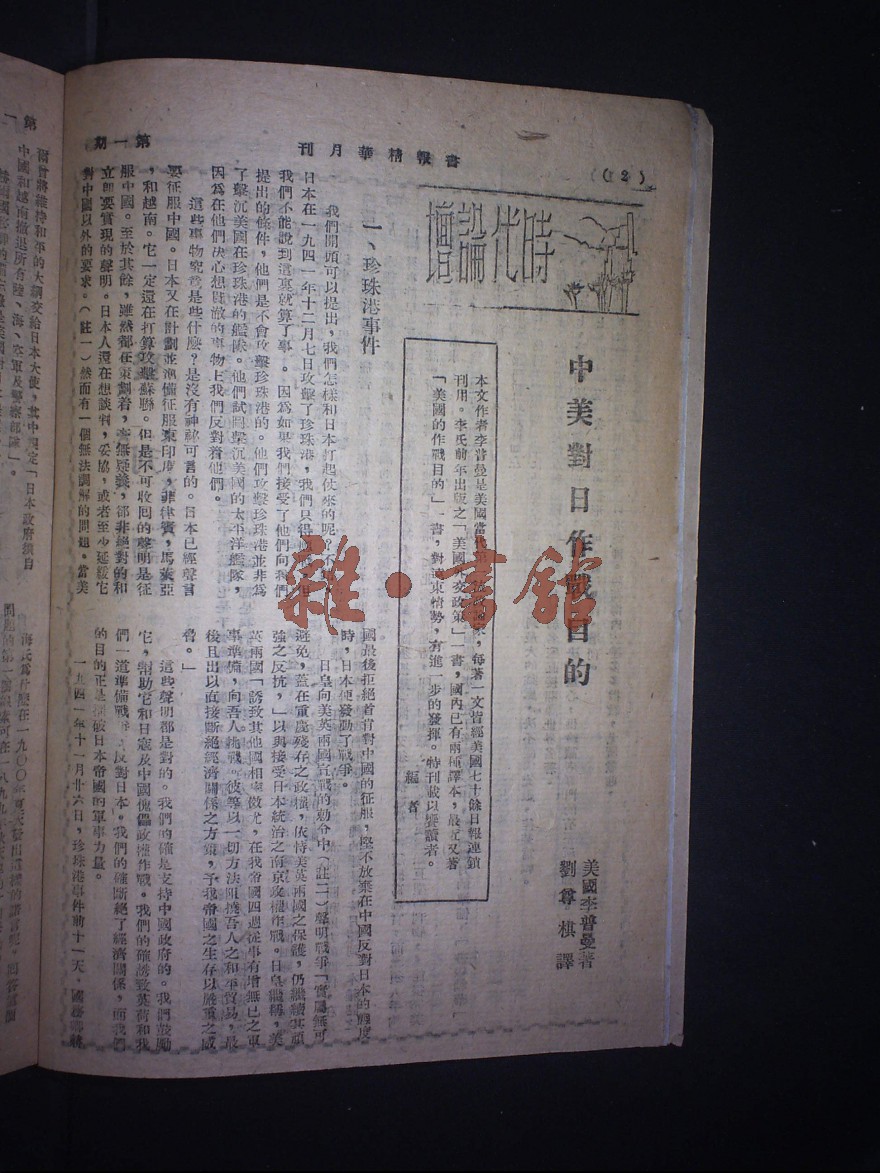 (12)
書報精華月刊
第一期
時代論壇
中美對日作戰目的
美國李普曼著
劉尊棋譯
本文作者李普曼是美國當代第一
家,每著一文皆經美國七十餘日報連鎖
刊用。李氏前年出版之「美國外交政策」一書,國內已有兩種譯本,最近又著
「美國的作戰目的」一書,對遠東情勢,有進一步的發揮。特刊載以饗讀者。
編者
一、珍珠港事件
我們開頭可以提出,我們怎樣和日本打起仗來的呢?
日本在一九四一年十二月七日攻擊了珍珠港,我們只得
我們不能說到這裏就算了事。因為如果我們接受了他們向我們
提出的條件,他們是不會攻擊珍珠港的。他們攻擊珍珠港並非為
了擊沉美國在珍珠港的艦隊。他們試圖擊沉美國的太平洋艦隊,
因為在他們決心想做的事物上我們反對着他們。
這些事物究竟是些什麼?是沒有神祕可言的。日本已經聲言
要征服中國。日本又在計劃並準備征服東印度,菲律賓,馬來亞
,和越南。它一定還在打算攻擊蘇聯。但是不可收回的聲明是征
服中國。至於其餘,雖然都在策劃着,毫無疑義,卻非絕對的和
立即要實現的聲明。日本人還在想談判,妥協,或者至少延緩它
對中國以外的要求。(註一)然而有一個無法調解的問題。當美
國最後拒絕首肯對中國的征服,堅不放棄在中國反對日本的態度
時,日本便發動了戰爭。
日皇向美英兩國宣戰的勅令中(註二)聲明戰爭「實屬無可
避免,蓋在重慶殘存之政權,依恃美英兩國之保護,仍繼續其頑
強之反抗,」以與接受日本統治之南京政權作戰。日皇繼稱,美
英兩國「誘致其他國相率傚尤,在我帝國四週從事有增無已之軍
事準備,向吾人挑戰。彼等以一切方法阻撓吾人之和平貿易,最
後且出以直接斷絕經濟關係之方策,予我帝國之生存以嚴重之威
脅。」
這些聲明都是對的。我們的確是支持中國政府的。我們鼓勵
它,幫助它和日寇及中國傀儡政權作戰。我們的確誘致英荷和我
們一道準備戰爭反對日本。我們的確斷絕了經濟關係,而我們
的目的正是摧破日本帝國的軍事力量。
一九四一年十一月廿六日,珍珠港事件前十一天,國務卿赫
第一
爾曾將維持和平的大綱交給日本大使,其中規定「日本政府須自
中國和越南撤退所有陸、海、空軍及警察部隊」。
雜·書館